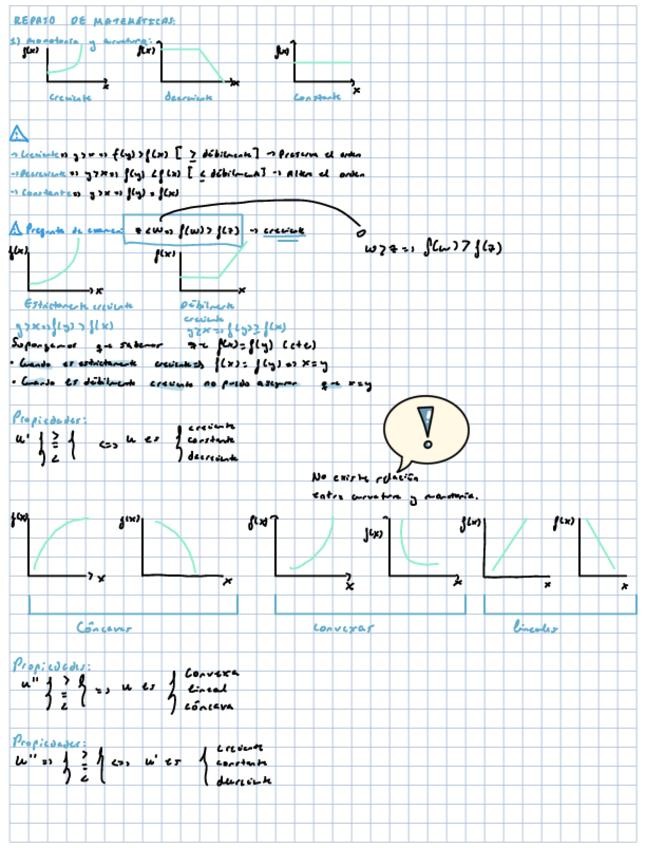 REPASO DE MATEMÁTICAS:
1) monotonía y curvatura:
f(x) f(x) f(x)
x x x
creciente decreciente constante
→ Creciente ⇒ y>x ⇒ f(y)>f(x) [≥ débilmente] → Preserva el orden
→ Decreciente ⇒ y>x ⇒ f(y)<f(x) [≤ débilmente] → Altera el orden
→ Constante ⇒ y>x ⇒ f(y)=f(x)
Pregunta de examen: z<w ⇒ f(w)>f(z) → creciente
w>z ⇒ f(w)>f(z)
f(x) f(x)
x x
Estrictamente creciente Débilmente creciente
y>x ⇒ f(y)>f(x) y≥x ⇒ f(y)≥f(x)
Supongamos que sabemos f(x)=f(y) (cte)
• Cuando es estrictamente creciente ⇒ f(x)=f(y) ⇒ x=y
• Cuando es débilmente creciente no puedo asegurar que x=y
Propiedades:
u' { > = < } ⇔ u es { creciente constante decreciente
!
No existe relación
entre curvatura y monotonía.
f(x) f(x) f(x) f(x) f(x) f(x)
x x x x x x
Cóncavas convexas lineales
Propiedades:
u'' { > = < } ⇒ u es { convexa lineal cóncava
Propiedades:
u'' ⇒ { > = < } ⇔ u' es { creciente constante decreciente